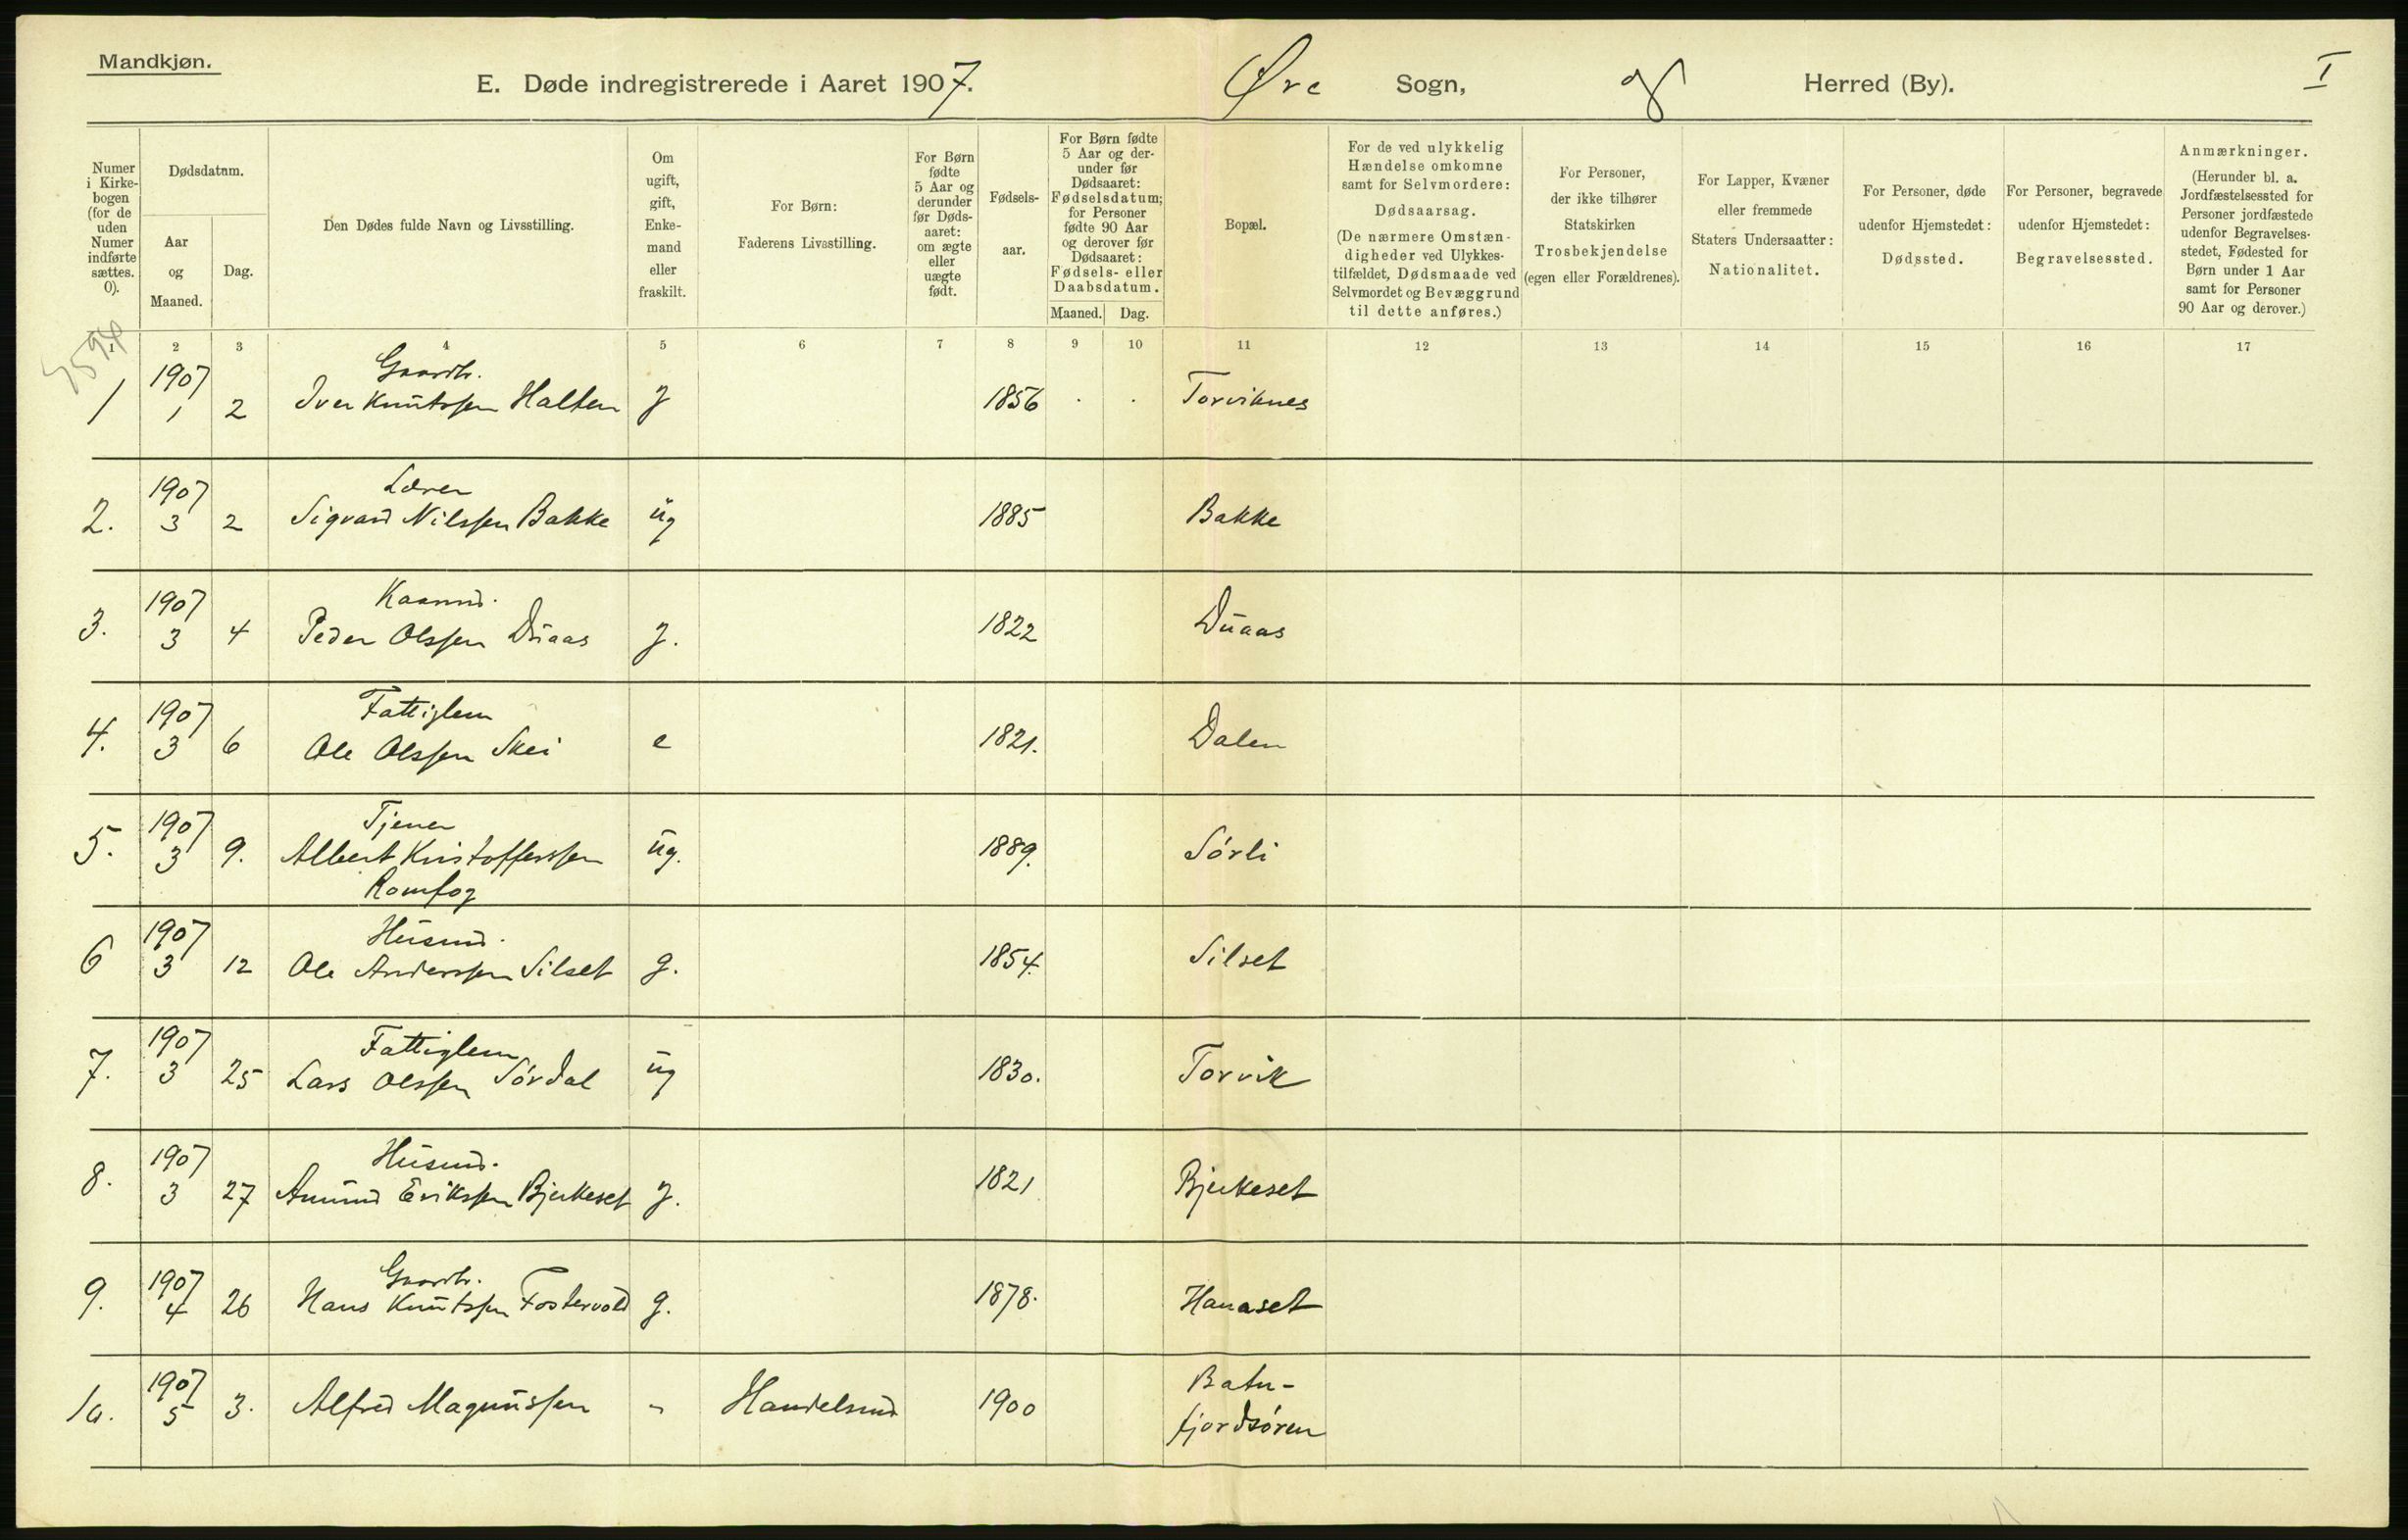 Mandkjøn.
E. Døde indregistrerede i Aaret 1907. Øre Sogn, og Herred (By). I
Numer i Kirkebogen (for de uden Numer indførte sættes. 0).
Dødsdatum.
Aar og Maaned.
Dag.
Den Dødes fulde Navn og Livsstilling.
Om ugift, gift, Enkemand eller fraskilt.
For Børn: Faderens Livsstilling.
For Børn fødte 5 Aar og derunder før Dødsaaret: om ægte eller uægte født.
Fødselsaar.
For Børn fødte 5 Aar og derunder før Dødsaaret: Fødselsdatum; for Personer fødte 90 Aar og derover før Dødsaaret: Fødsels- eller Daabsdatum.
Maaned. Dag.
Bopæl.
For de ved ulykkelig Hændelse omkomne samt for Selvmordere: Dødsaarsag. (De nærmere Omstændigheder ved Ulykkestilfældet, Dødsmaade ved Selvmordet og Bevæggrund til dette anføres.)
For Personer, der ikke tilhører Statskirken Trosbekjendelse (egen eller Forældrenes).
For Lapper, Kvæner eller fremmede Staters Undersaatter: Nationalitet.
For Personer, døde udenfor Hjemstedet: Dødssted.
For Personer, begravede udenfor Hjemstedet: Begravelsessted.
Anmærkninger. (Herunder bl. a. Jordfæstelsessted for Personer jordfæstede udenfor Begravelsesstedet, Fødested for Børn under 1 Aar samt for Personer 90 Aar og derover.)
1 2 3 4 5 6 7 8 9 10 11 12 13 14 15 16 17
1907 Gaardbr.
1 1 2 Iver Knutssen Halten g 1856 Torviknes
1907 Lærer
2. 3 2 Sigvard Nilssen Bakke ug 1885 Bakke
1907 Kaarmd.
3. 3 4 Peder Olssen Duaas g. 1822 Duaas
1907 Fattiglem
4. 3 6 Ole Olssen Skei e 1821. Dalen
1907 Tjener
5. 3 9. Albert Kristofferssen ug. 1889. Sórli
Romfog
1907 Husmd.
6 3 12 Ole Anderssen Silset g. 1854. Silset
1907 Fattiglem
7. 3 25 Lars Olssen Sórdal ug 1830. Torvik
1907 Husmd.
8. 3 27 Amund Erikssen Bjerkeset g. 1821 Bjerkeset
1907 Gaardbr.
9. 4 26 Hans Knutssen Fostervold g. 1878. Hanaset
1907 Batn-
10. 5 3. Alfred Magnussen " Handelsmd 1900 fjordsóren